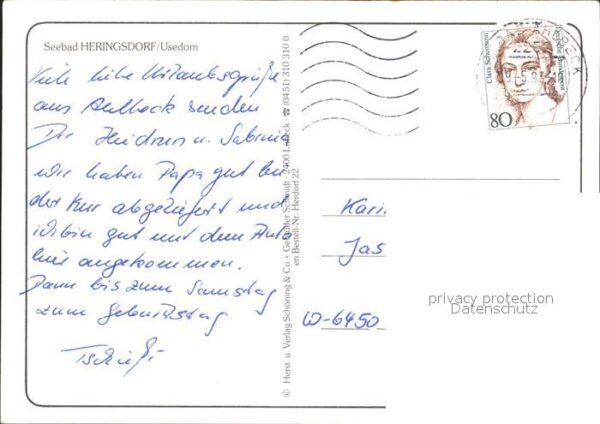 Seebad HERINGSDORF/Usedom
Viele liebe Urlaubsgrüße
aus Ahlbeck senden
Dir Heidrun u. Sabrina
wir haben Papa gut bei
der Kur abgeliefert und
ich bin gut mit dem Auto
hier angekommen.
Dann bis zum Samstag
zum Geburtstag
Tschüß
© Herst. u. Verlag Schöning & Co + Gebrüder Schmidt · 2400 Lübeck · ☎ (0451) 310 310 0
en Bestell-Nr. Herdorf 22
Clara Schumann
80
Karin
Jas
W-6450
privacy protection
Datenschutz